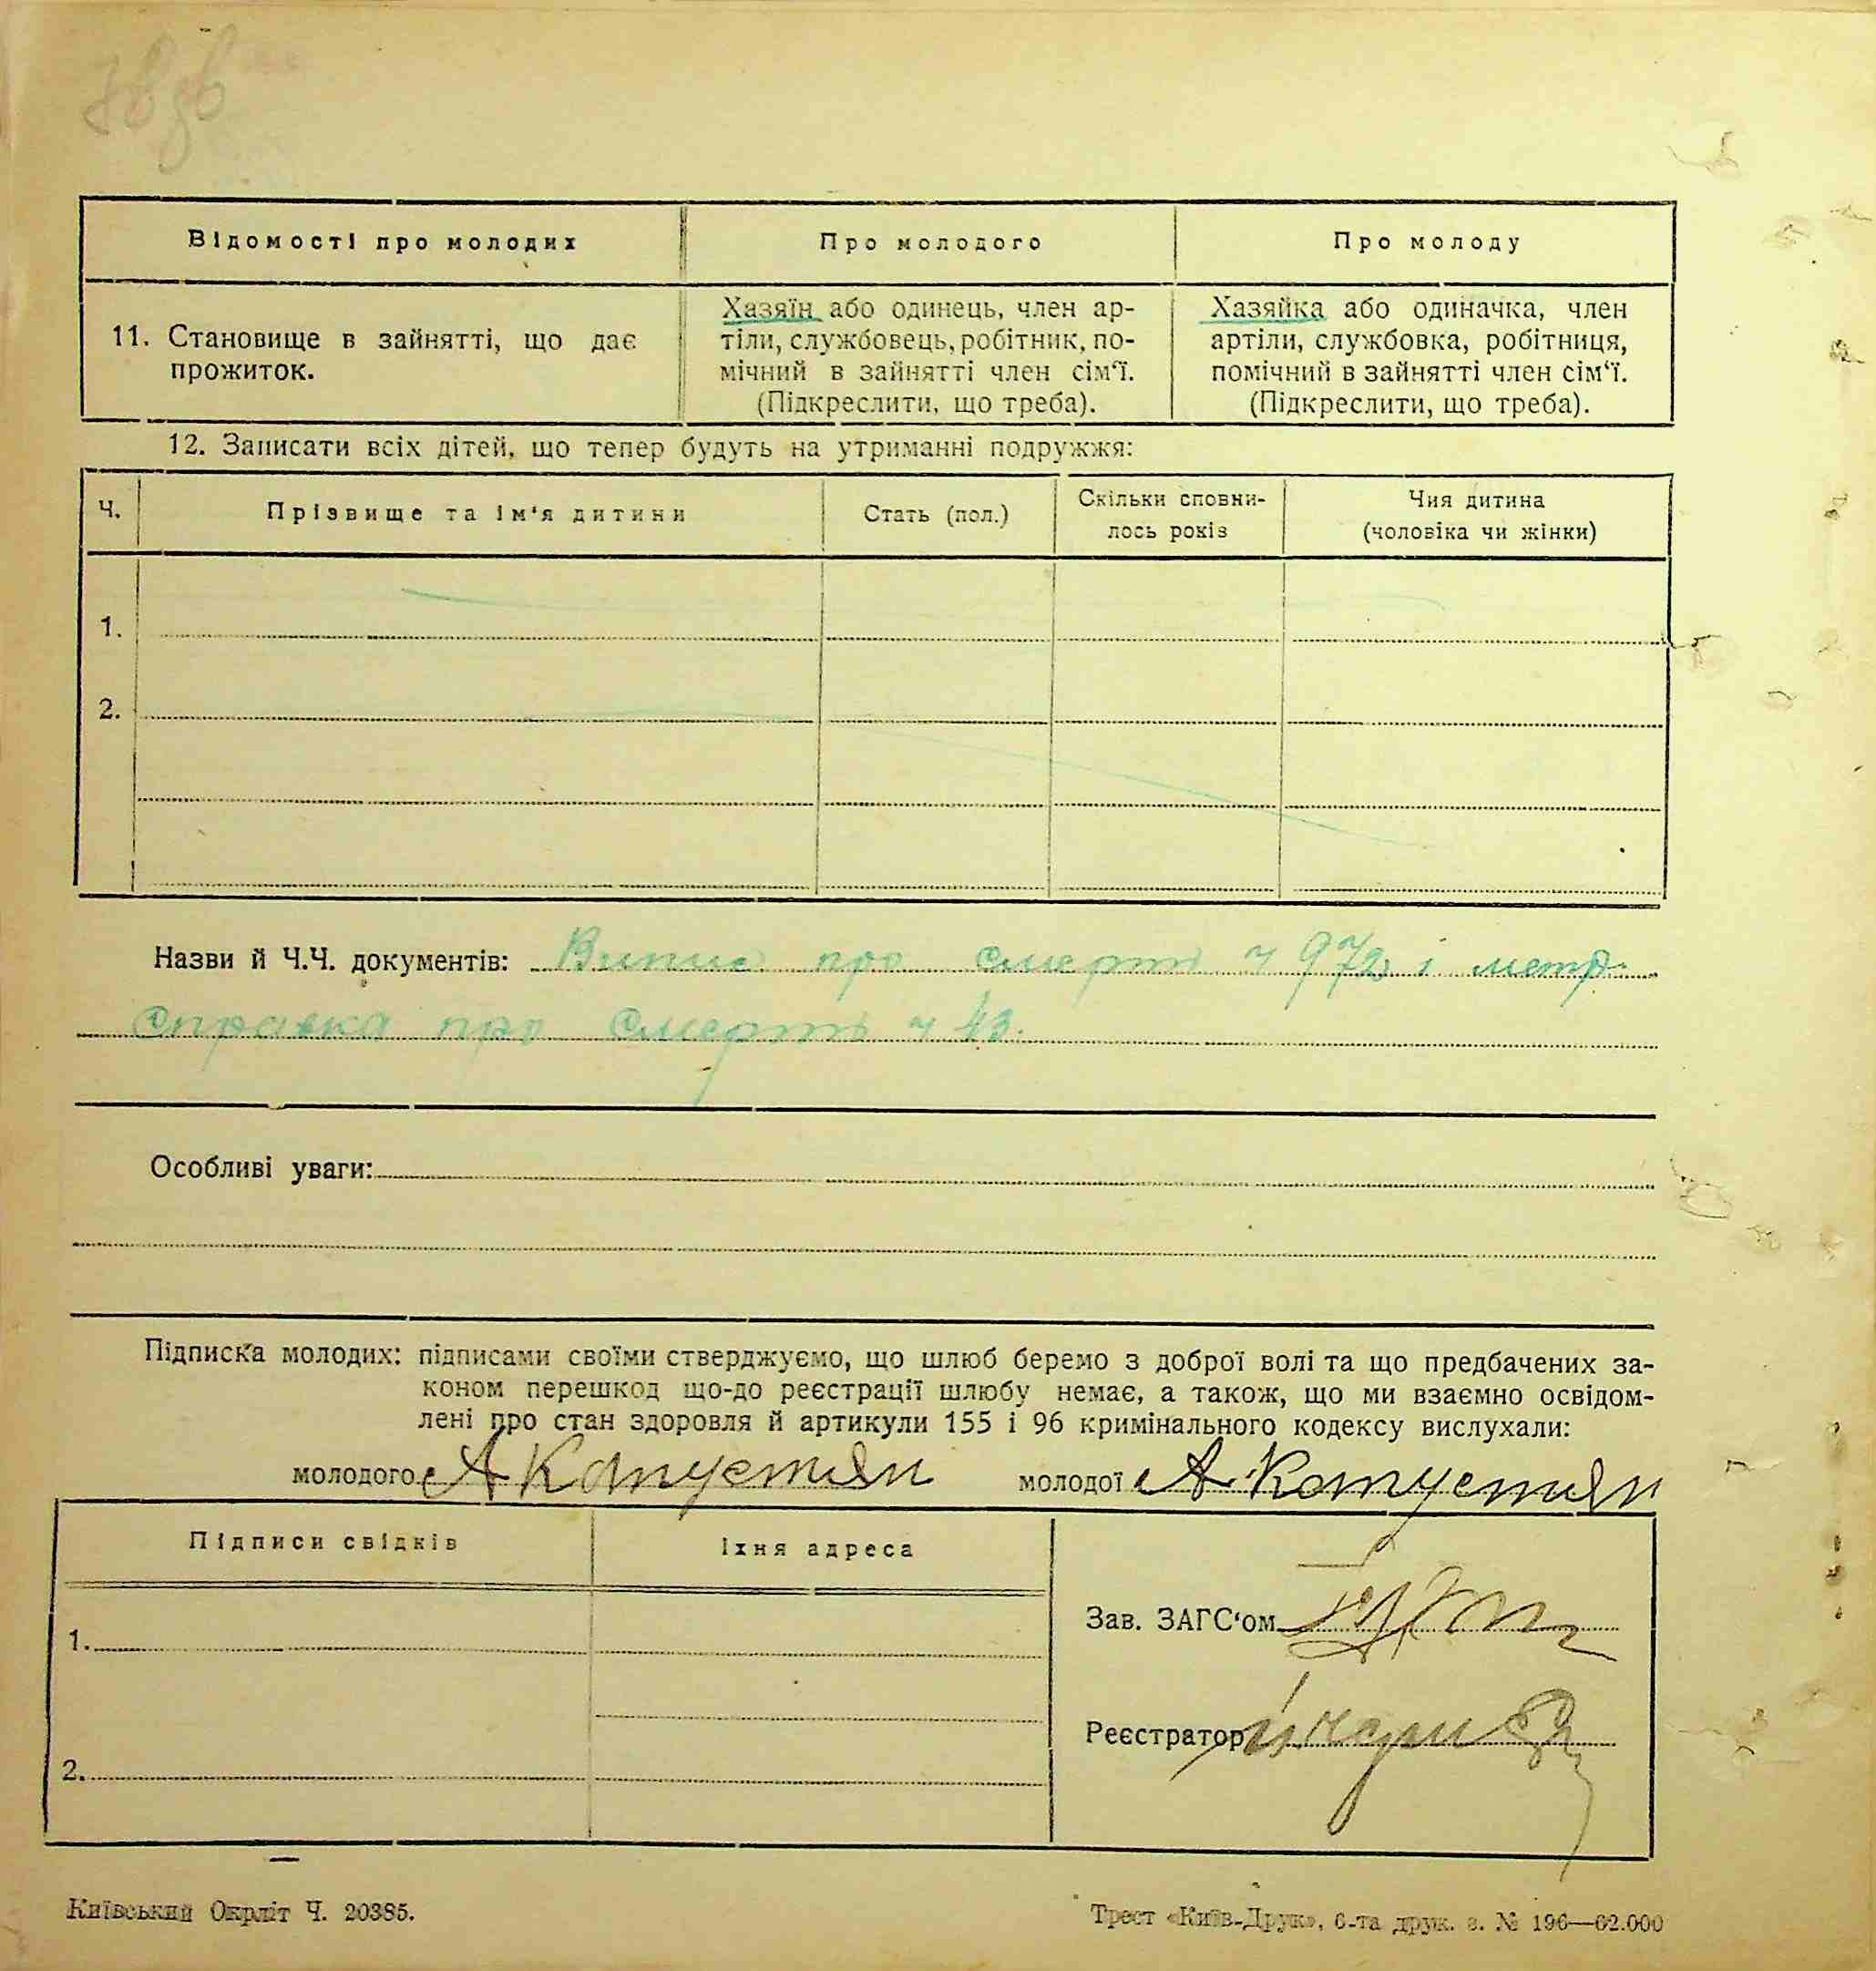 Відомості про молодих
Про молодого
Про молоду
11. Становище в зайнятті, що дає
прожиток.
Хазяїн або одинець, член ар-
тіли, службовець, робітник, по-
мічний в зайнятті член сім'ї.
(Підкреслити, що треба).
Хазяйка або одиначка, член
артіли, службовка, робітниця,
помічний в зайнятті член сім'ї.
(Підкреслити, що треба).
12. Записати всіх дітей, що тепер будуть на утриманні подружжя:
Ч.
Прізвище та ім'я дитини
Стать (пол.)
Скільки сповни-
лось років
Чия дитина
(чоловіка чи жінки)
1.
2.
Назви й Ч.Ч. документів: Випис про смерть ч 972 і метр.
Справка про смерть ч 43.
Особливі уваги:
Підписка молодих: підписами своїми стверджуємо, що шлюб беремо з доброї волі та що предбачених за-
коном перешкод що-до реєстрації шлюбу немає, а також, що ми взаємно освідом-
лені про стан здоровля й артикули 155 і 96 кримінального кодексу вислухали:
молодого А Капустян молодої А. Капустян
Підписи свідків
Їхня адреса
1.
2.
Зав. ЗАГС'ом
Реєстратор
Київський Окрліт Ч. 20385.
Трест «Київ-Друк», 6-та друк. з. № 196—62.000